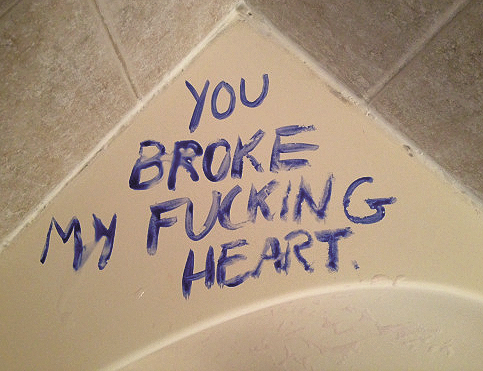 YOU
BROKE
MY FUCKING
HEART.